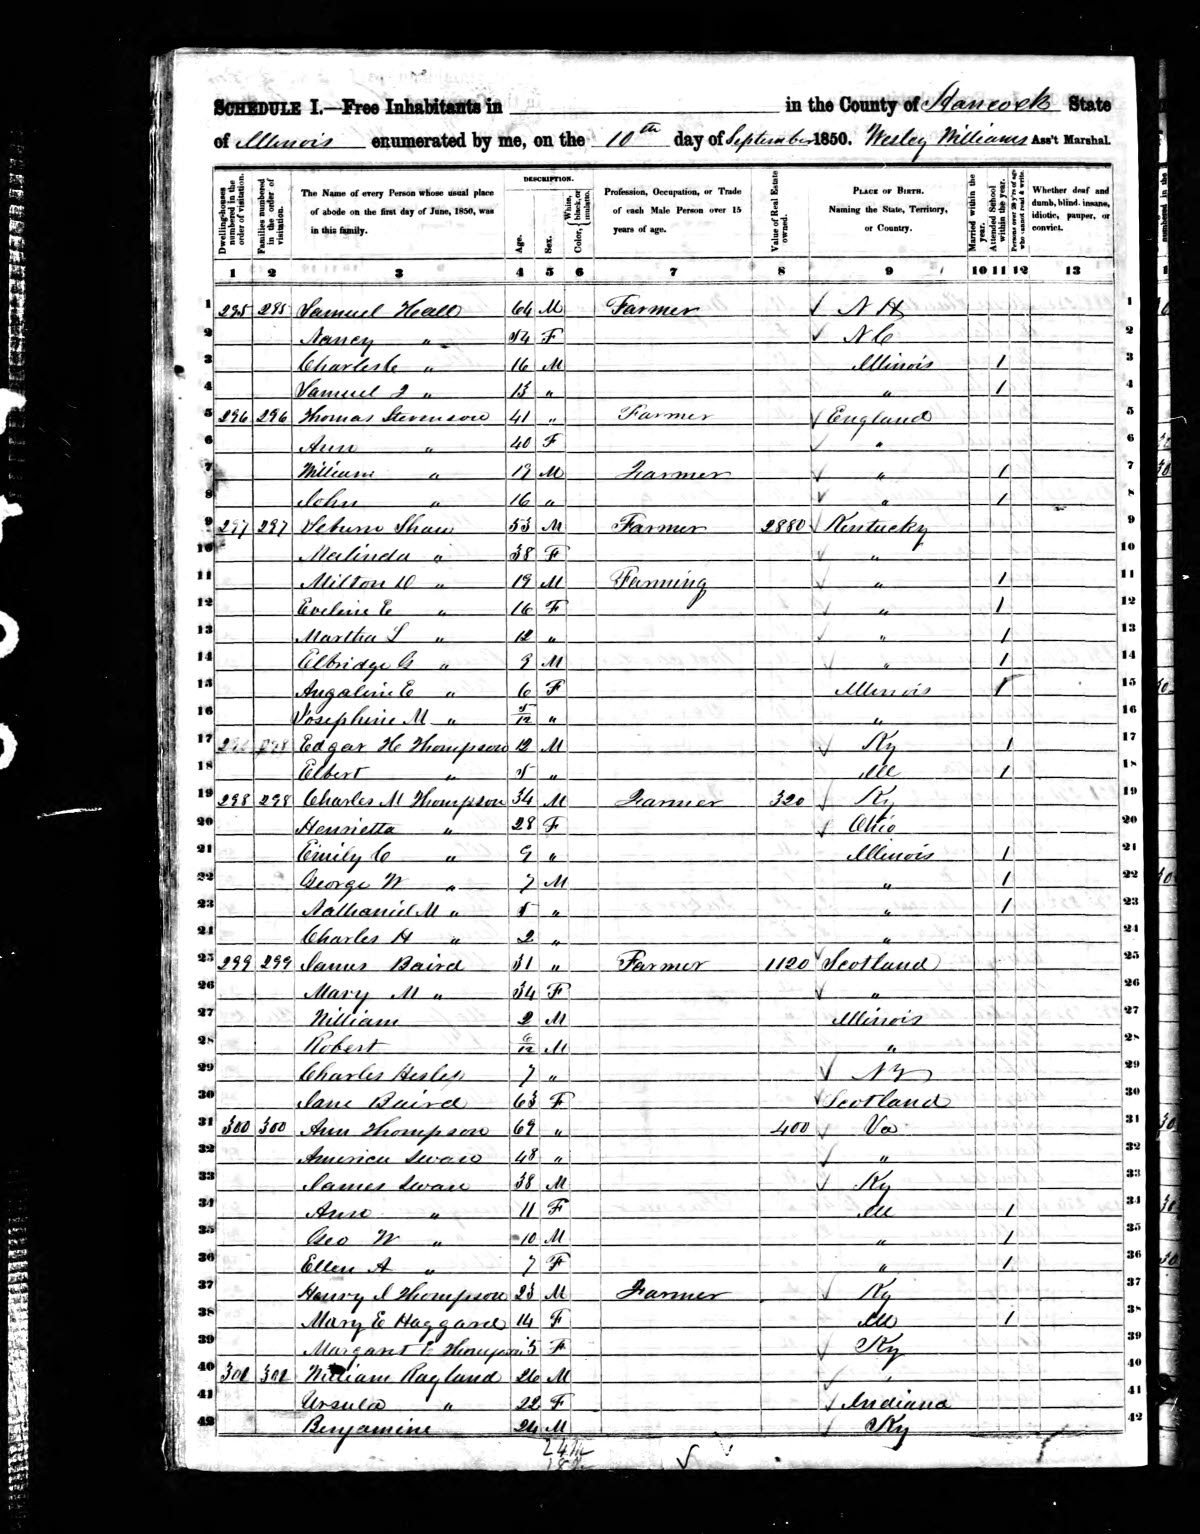 SCHEDULE I.—Free Inhabitants in in the County of Hancock State
of Illinois enumerated by me, on the 10th day of September 1850. Wesley Williams Ass't Marshal.
Dwelling-houses numbered in the order of visitation.
Families numbered in the order of visitation.
The Name of every Person whose usual place of abode on the first day of June, 1850, was in this family.
DESCRIPTION.
Age.
Sex.
Color, White, black, or mulatto.
Profession, Occupation, or Trade of each Male Person over 15 years of age.
Value of Real Estate owned.
PLACE OF BIRTH. Naming the State, Territory, or Country.
Married within the year.
Attended School within the year.
Persons over 20 y'rs of age who cannot read & write.
Whether deaf and dumb, blind, insane, idiotic, pauper, or convict.
1 2 3 4 5 6 7 8 9 10 11 12 13
1 295 295 Samuel Hall 64 M Farmer ✓ N H 1
2 Nancy " 54 F ✓ N C 2
3 Charles C " 16 M Illinois 1 3
4 Samuel J " 13 " " 1 4
5 296 296 Thomas Stevenson 41 " Farmer ✓ England 5
6 Ann " 40 F ✓ " 6
7 William " 19 M Farmer ✓ " 1 7
8 John " 16 " ✓ " 1 8
9 297 297 Shaw 53 M Farmer 2880 ✓ Kentucky 9
10 Malinda " 38 F ✓ " 10
11 Milton D " 19 M Farming ✓ " 1 11
12 Eveline E " 16 F ✓ " 1 12
13 Martha S " 12 " ✓ " 1 13
14 Elbridge G " 9 M " 1 14
15 Angaline E " 6 F Illinois 1 15
16 Josephine M " 5/12 " " 16
17 298 298 Edgar H Thompson 12 M ✓ Ky 1 17
18 Elbert " 5 " Ill 1 18
19 298 298 Charles M Thompson 34 M Farmer 320 ✓ Ky 19
20 Henrietta " 28 F ✓ Ohio 20
21 Emily C " 9 " Illinois 1 21
22 George W " 7 M " 1 22
23 Nathaniel M " 5 " " 1 23
24 Charles H " 2 " " 24
25 299 299 James Baird 31 " Farmer 1120 ✓ Scotland 25
26 Mary M " 34 F ✓ " 26
27 William 2 M Illinois 27
28 Robert 6/12 M " 28
29 Charles Heslep 7 " ✓ N Y 29
30 Jane Baird 63 F ✓ Scotland 30
31 300 300 Ann Thompson 69 " 400 ✓ Va 31
32 America Swan 48 " ✓ " 32
33 James Swan 38 M ✓ Ky 33
34 Ann " 11 F Ill 1 34
35 Geo W " 10 M " 1 35
36 Ellen A " 7 F " 1 36
37 Henry I Thompson 23 M Farmer ✓ Ky 37
38 Mary E Haggard 14 F Ill 1 38
39 Margaret E Thompson F ✓ Ky 39
40 301 301 William Ragland 26 M ✓ 40
41 Ursula " 22 F ✓ Indiana 41
42 Benjamine 24 M ✓ Ky 42